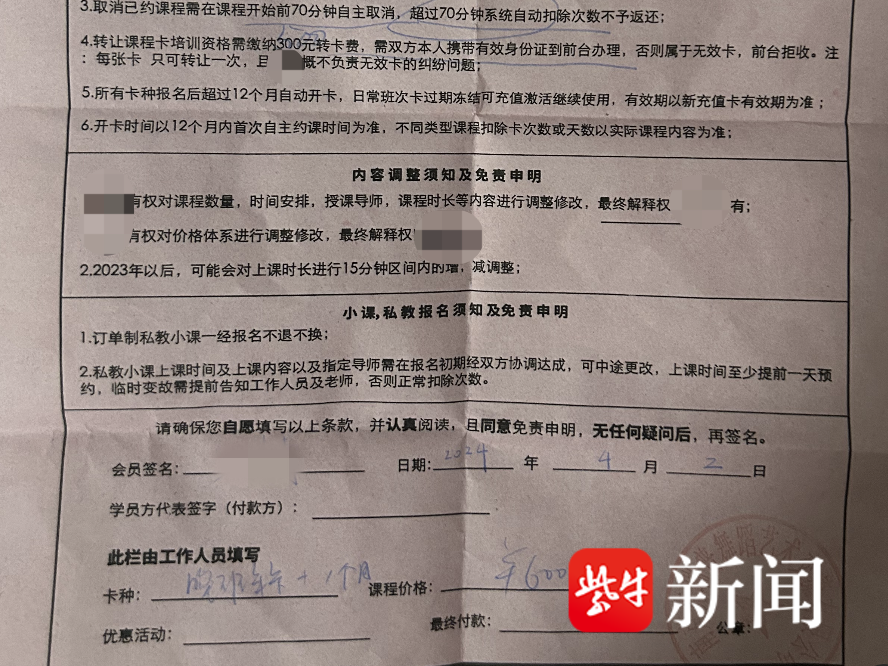 3.取消已约课程需在课程开始前70分钟自主取消，超过70分钟系统自动扣除次数不予返还；
4.转让课程卡培训资格需缴纳300元转卡费，需双方本人携带有效身份证到前台办理，否则属于无效卡，前台拒收。注
：每张卡 只可转让一次，且 概不负责无效卡的纠纷问题；
5.所有卡种报名后超过12个月自动开卡，日常班次卡过期冻结可充值激活继续使用，有效期以新充值卡有效期为准；
6.开卡时间以12个月内首次自主约课时间为准，不同类型课程扣除卡次数或天数以实际课程内容为准；
内容调整须知及免责申明
有权对课程数量，时间安排，授课导师，课程时长等内容进行调整修改，最终解释权 有；
有权对价格体系进行调整修改，最终解释权
2.2023年以后，可能会对上课时长进行15分钟区间内的增，减调整；
小课，私教报名须知及免责申明
1.订单制私教小课一经报名不退不换；
2.私教小课上课时间及上课内容以及指定导师需在报名初期经双方协调达成，可中途更改，上课时间至少提前一天预
约，临时变故需提前告知工作人员及老师，否则正常扣除次数。
请确保您自愿填写以上条款，并认真阅读，且同意免责申明，无任何疑问后，再签名。
会员签名： 日期：2024 年 4 月 2 日
学员方代表签字（付款方）：
此栏由工作人员填写
卡种： 年卡+1个月 课程价格：¥600
优惠活动： 最终付款： 公章：
紫牛 新闻